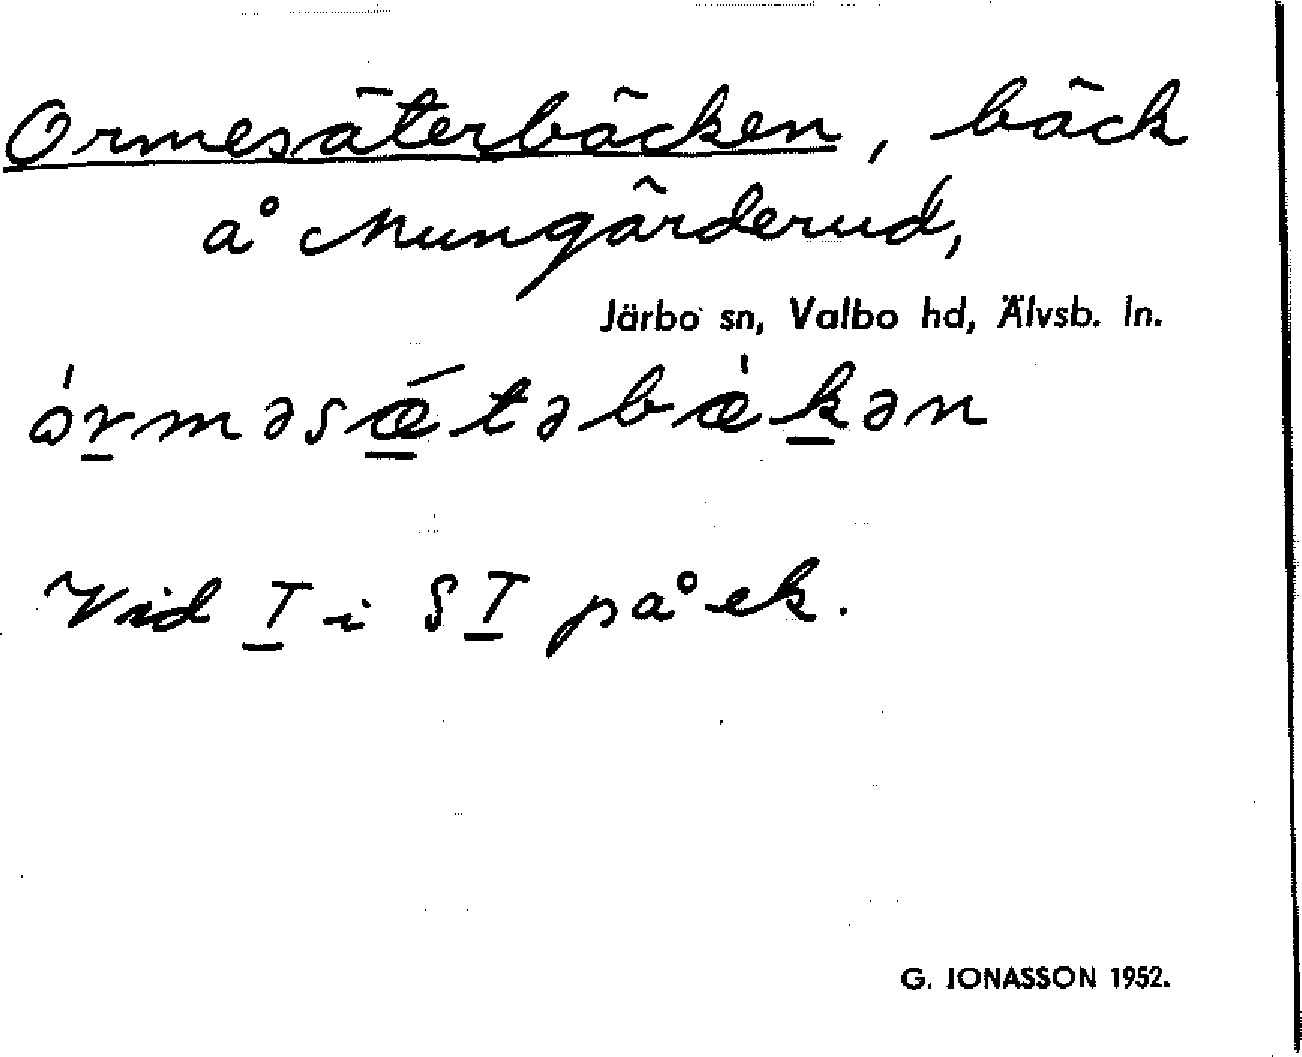 Ormesäterbäcken, bäck
å Mungärderud,
Järbo sn, Valbo hd, Älvsb. ln.
òrməsǽtəbæ̀kən
Vid I i S I på ek.
G. JONASSON 1952.